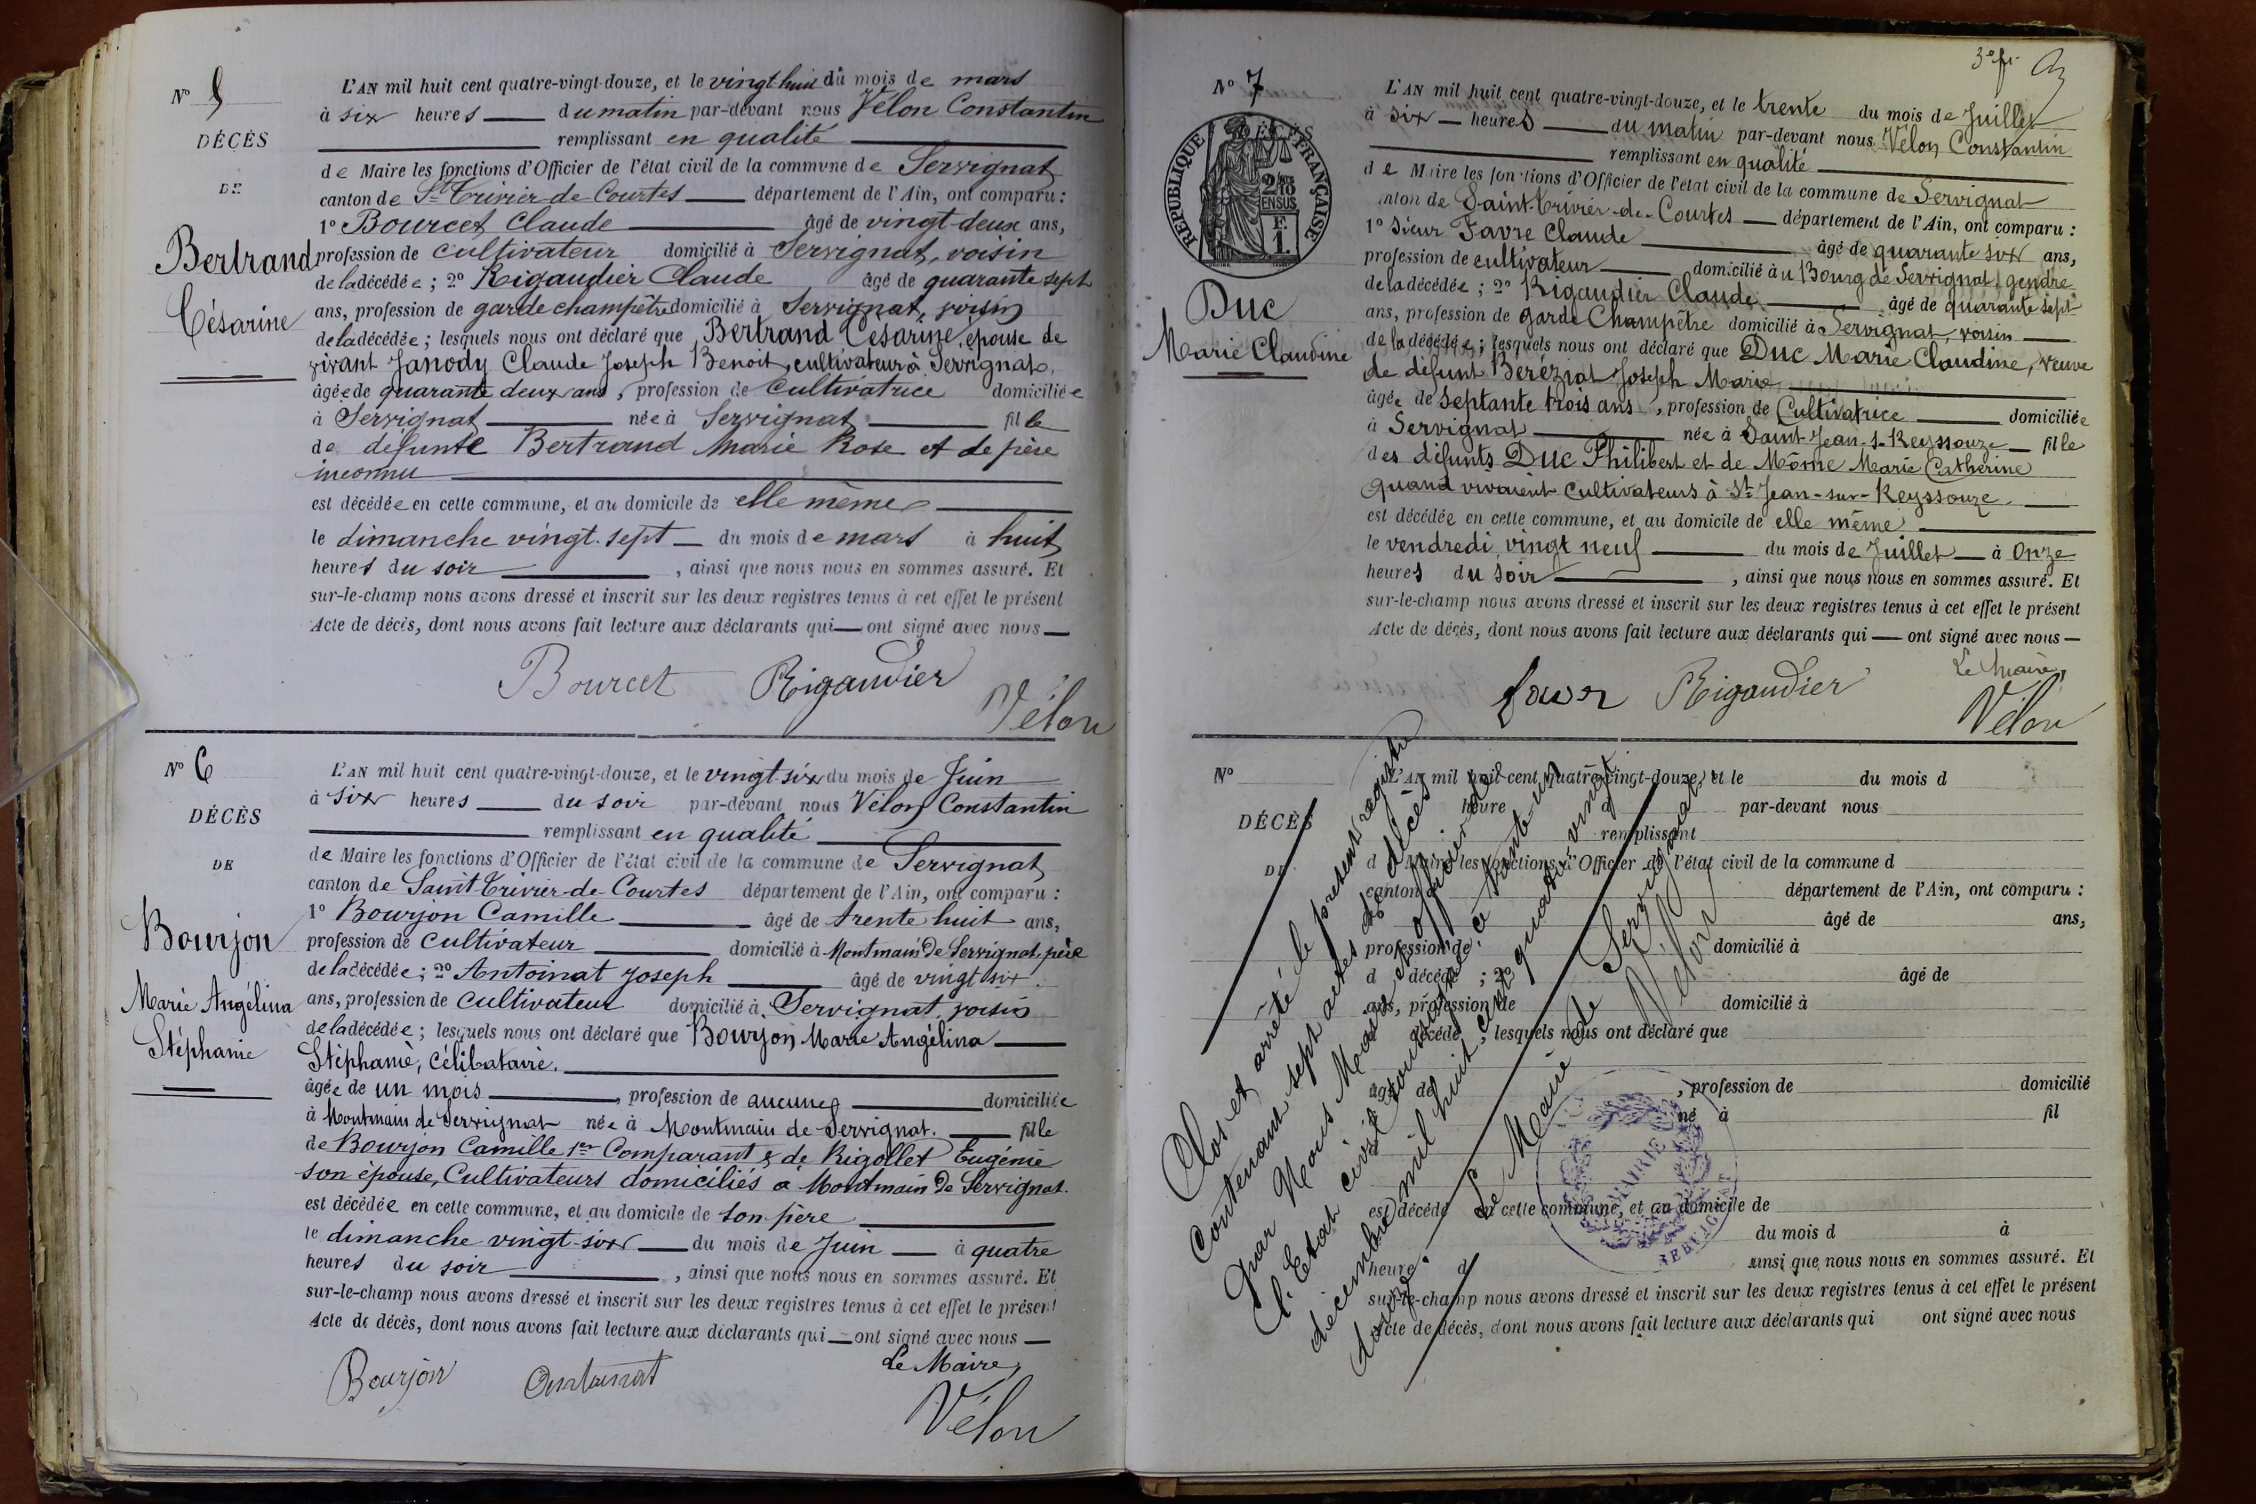 N° 5
DÉCÈS
DE
Bertrand
Césarine
L'AN mil huit cent quatre-vingt-douze, et le vingt huit du mois de mars
à six heures du matin par-devant nous Vélon Constantin
remplissant en qualité
de Maire les fonctions d'Officier de l'état civil de la commune de Servignat
canton de St Trivier-de-Courtes département de l'Ain, ont comparu :
1° Bourcet Claude âgé de vingt-deux ans,
profession de cultivateur domicilié à Servignat, voisin
de la décédée ; 2° Rigaudier Claude âgé de quarante sept
ans, profession de garde champêtre domicilié à Servignat, voisin
de la décédée ; lesquels nous ont déclaré que Bertrand Césarine, épouse de
vivant Janody Claude Joseph Benoit, cultivateur à Servignat,
âgée de quarante deux ans, profession de Cultivatrice domiciliée
à Servignat née à Servignat fille
de défunte Bertrand Marie Rose et de père
inconnu
est décédée en cette commune, et au domicile de elle même
le dimanche vingt-sept du mois de mars à huit
heures du soir, ainsi que nous nous en sommes assuré. Et
sur-le-champ nous avons dressé et inscrit sur les deux registres tenus à cet effet le présent
Acte de décès, dont nous avons fait lecture aux déclarants qui ont signé avec nous
Bourcet Rigaudier Vélon
N° 6
DÉCÈS
DE
Bourjon
Marie Angélina
Stéphanie
L'AN mil huit cent quatre-vingt-douze, et le vingt six du mois de Juin
à six heures du soir par-devant nous Vélon Constantin
remplissant en qualité
de Maire les fonctions d'Officier de l'état civil de la commune de Servignat
canton de Saint Trivier-de-Courtes département de l'Ain, ont comparu :
1° Bourjon Camille âgé de trente huit ans,
profession de cultivateur domicilié à Montmain de Servignat, père
de la décédée ; 2° Antoinat Joseph âgé de vingt six
ans, profession de cultivateur domicilié à Servignat, voisin
de la décédée ; lesquels nous ont déclaré que Bourjon Marie Angélina
Stéphanie, célibataire.
âgée de un mois, profession de aucune domiciliée
à Montmain de Servignat née à Montmain de Servignat. fille
de Bourjon Camille 1er Comparant & de Rigollet Eugénie
son épouse, Cultivateurs domiciliés à Montmain de Servignat.
est décédée en cette commune, et au domicile de son père
le dimanche vingt-six du mois de Juin à quatre
heures du soir, ainsi que nous nous en sommes assuré. Et
sur-le-champ nous avons dressé et inscrit sur les deux registres tenus à cet effet le présent
Acte de décès, dont nous avons fait lecture aux déclarants qui ont signé avec nous
Le Maire,
Bourjon Antoinat
Vélon
3e f.
N° 7
DÉCÈS
RÉPUBLIQUE FRANÇAISE
2/10 EN SUS
F. 1.
Duc
Marie Claudine
L'AN mil huit cent quatre-vingt-douze, et le trente du mois de Juillet
à six heures du matin par-devant nous Vélon Constantin
remplissant en qualité
de Maire les fonctions d'Officier de l'état civil de la commune de Servignat
canton de Saint-Trivier-de-Courtes département de l'Ain, ont comparu :
1° Sieur Favre Claude âgé de quarante six ans,
profession de cultivateur domicilié au Bourg de Servignat, gendre
de la décédée ; 2° Rigaudier Claude âgé de quarante sept
ans, profession de garde Champêtre domicilié à Servignat, voisin
de la décédée ; lesquels nous ont déclaré que Duc Marie Claudine, veuve
de défunt Beréziat Joseph Marie
âgée de septante trois ans, profession de Cultivatrice domiciliée
à Servignat née à Saint-Jean-s-Reyssouze fille
des défunts Duc Philibert et de Môme Marie Catherine
quand vivaient cultivateurs à St Jean-sur-Reyssouze.
est décédée en cette commune, et au domicile de elle même
le vendredi vingt neuf du mois de Juillet à Onze
heures du soir, ainsi que nous nous en sommes assuré. Et
sur-le-champ nous avons dressé et inscrit sur les deux registres tenus à cet effet le présent
Acte de décès, dont nous avons fait lecture aux déclarants qui ont signé avec nous
Le Maire,
Rigaudier
Vélon
N°
DÉCÈS
DE
L'AN mil huit cent quatre-vingt-douze, et le du mois d
heure d par-devant nous
remplissant
d Maire les fonctions d'Officier de l'état civil de la commune d
canton d département de l'Ain, ont comparu :
âgé de ans,
profession de domicilié à
d décédé ; 2° âgé de
ans, profession de domicilié à
décédé ; lesquels nous ont déclaré que
âgé de, profession de domicilié
né à fil
est décédé en cette commune, et au domicile de
du mois d à
heure d ainsi que nous nous en sommes assuré. Et
sur-le-champ nous avons dressé et inscrit sur les deux registres tenus à cet effet le présent
Acte de décès, dont nous avons fait lecture aux déclarants qui ont signé avec nous
Clos et arrêté le présent registre
Contenant sept actes de décès
par Nous Maire et officier de
l'Etat civil soussigné, ce trente-un
décembre mil huit cent quatre-vingt
douze.
Le Maire de Servignat
Vélon
MAIRIE
SERVIGNAT